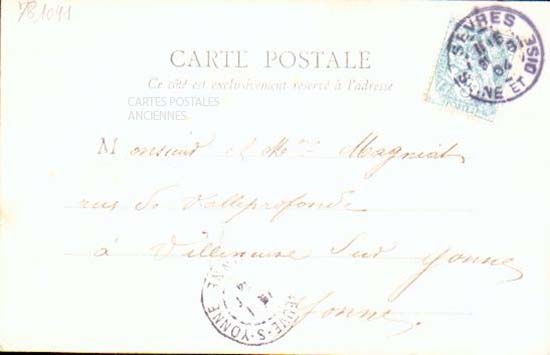 781091
SEVRES
SEINE ET OISE
04
CARTE POSTALE
Ce côté est exclusivement réservé à l'adresse
CARTES POSTALES
ANCIENNES
Monsieur et Mme Magniat
rue de Valleprofonde
à Villeneuve sur Yonne
Yonne
S-YONNE